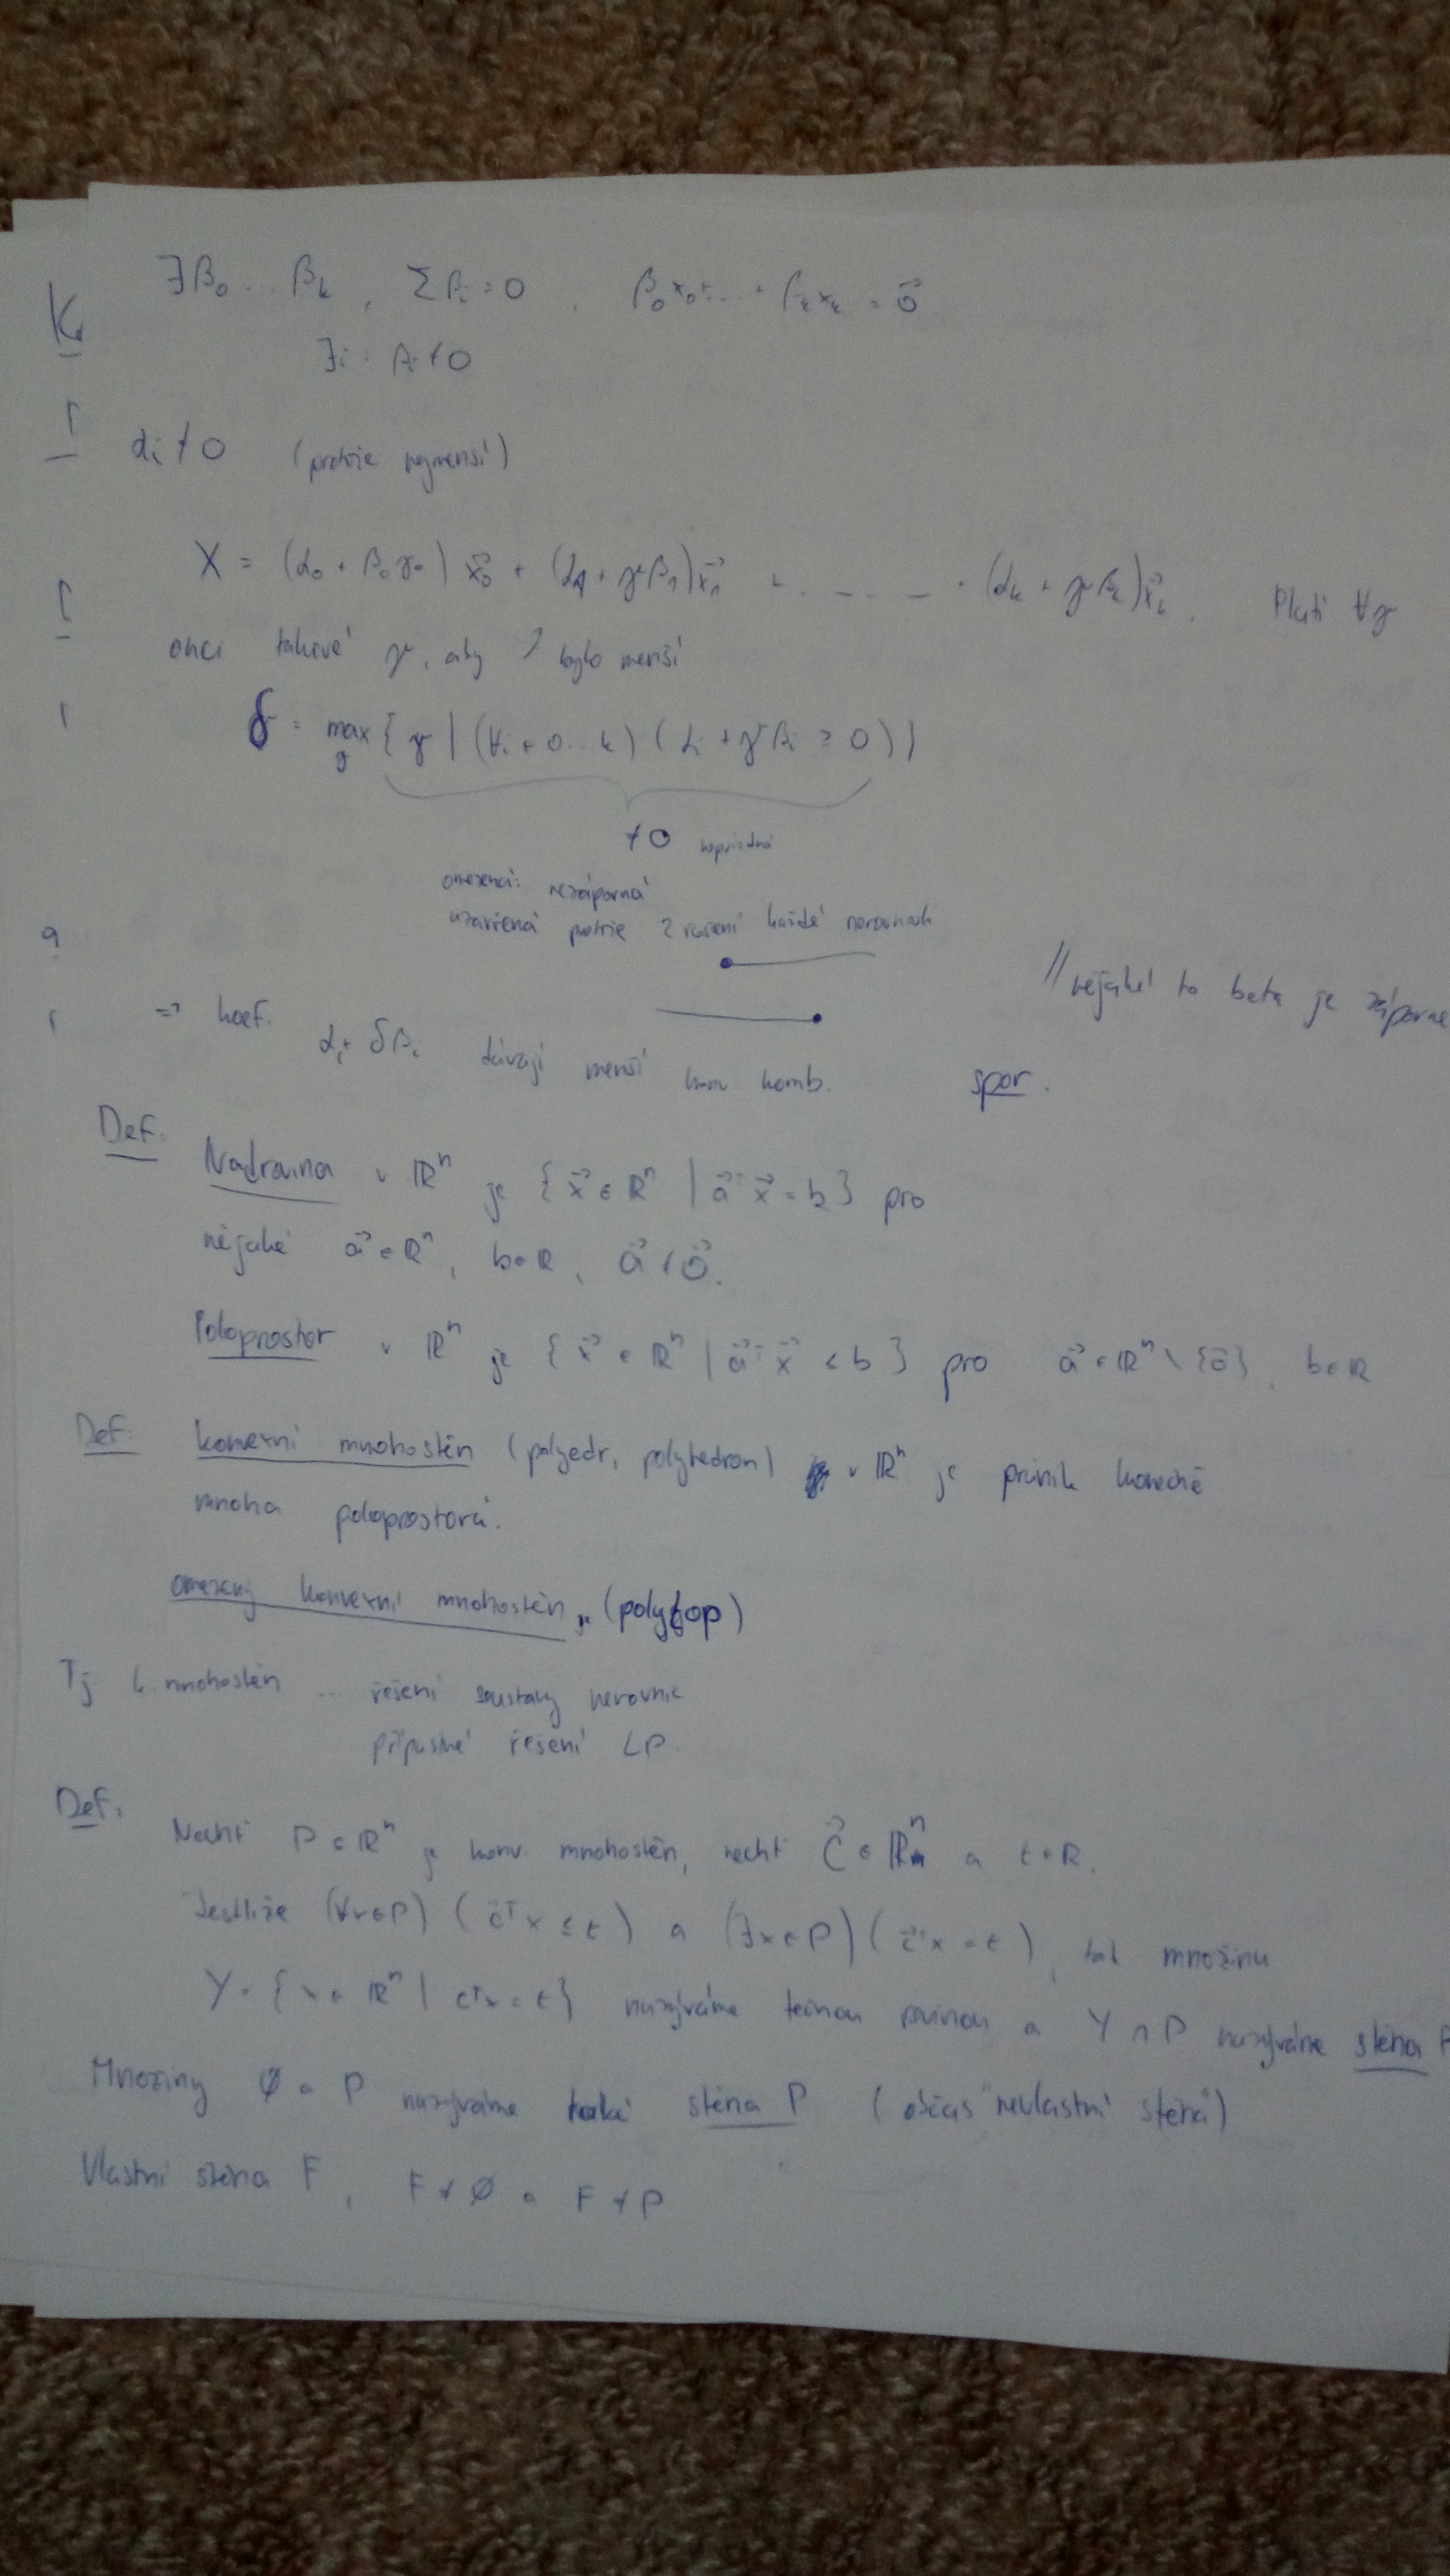 ∃β₀ ... βₖ, Σβᵢ = 0, β₀x₀ + ... + βₖxₖ = 0⃗
∃i: βᵢ ≠ 0
αᵢ ≠ 0 (protože nejmenší)
X = (α₀ + β₀γ) x⃗₀ + (α₁ + γβ₁)x⃗₁ + ... + (αₖ + γβₖ)x⃗ₖ. Platí ∀γ
chci takové γ, aby bylo menší
δ = max_γ {γ | (∀i ∈ 0...k) (αᵢ + γβᵢ ≥ 0)}
≠ 0 neprázdná
omezená: nezáporná
uzavřená protože řešení každé nerovnosti
// nějaké to beta je záporné
=> koef. αᵢ + δβᵢ dávají menší konv komb. spor.
Def: Nadrovina v ℝⁿ je {x⃗ ∈ ℝⁿ | a⃗ᵀx⃗ = b} pro
nějaké a⃗ ∈ ℝⁿ, b ∈ ℝ, a⃗ ≠ 0⃗.
Poloprostor v ℝⁿ je {x⃗ ∈ ℝⁿ | a⃗ᵀx⃗ ≤ b} pro a⃗ ∈ ℝⁿ \ {0⃗}, b ∈ ℝ
Def: konvexní mnohostěn (polyedr, polyhedron) v ℝⁿ je průnik konečně
mnoha poloprostorů.
omezený konvexní mnohostěn je (polytop)
Tj k. mnohostěn ... řešení soustavy nerovnic
přípustné řešení LP.
Def: Nechť P ⊂ ℝⁿ je konv. mnohostěn, nechť c⃗ ∈ ℝⁿ a t ∈ ℝ.
Jestliže (∀x∈P) (c⃗ᵀx ≤ t) a (∃x∈P) (c⃗ᵀx = t), tak množinu
Y = {x ∈ ℝⁿ | cᵀx = t} nazýváme tečnou rovinou a Y ∩ P nazýváme stěna P
Množiny ∅ a P nazýváme také stěna P (občas "nevlastní stěna")
Vlastní stěna F, F ≠ ∅ a F ≠ P